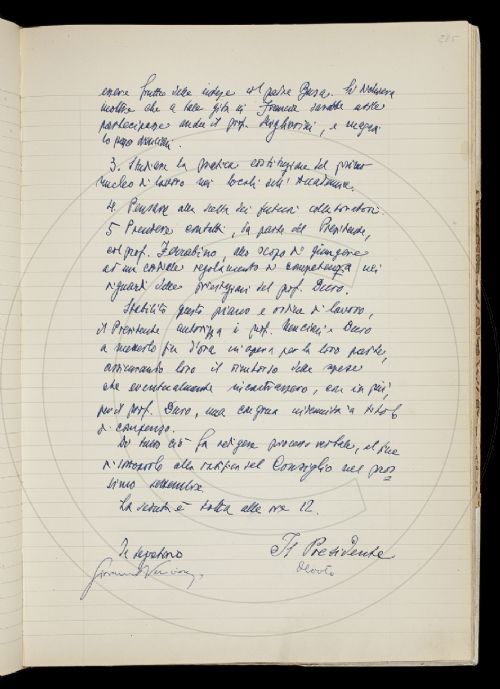 205
essere frutto delle indagini del padre Busa. Si dichiara
inoltre che a tale gita in Francia sarebbe utile
partecipasse anche il prof. Migliorini, e magari
lo
3. Studiare la pratica costituzione del primo
nucleo di lavoro nei locali dell'Accademia.
4. Pensare alla scelta dei futuri collaboratori.
5 Prendere contatti, da parte del Presidente,
col prof. Ferrabino, allo scopo di giungere
ad un cordiale regolamento di competenza nei
riguardi delle prestazioni del prof. Duro.
Stabilito questo piano e ordine di lavoro,
il Presidente autorizza i prof. Nencioni e Duro
a mettersi fin d'ora in opera per la loro parte,
assicurando loro il rimborso delle spese
che eventualmente incontrassero, con in più,
per il prof. Duro, una congrua indennità a titolo
di compenso.
Di tutto ciò fa redigere processo verbale, al fine
di sottoporlo alla ratifica del Consiglio nel pros-
simo settembre.
La seduta è tolta alle ore 12.
Il segretario Il Presidente
Giovanni Nencioni Devoto